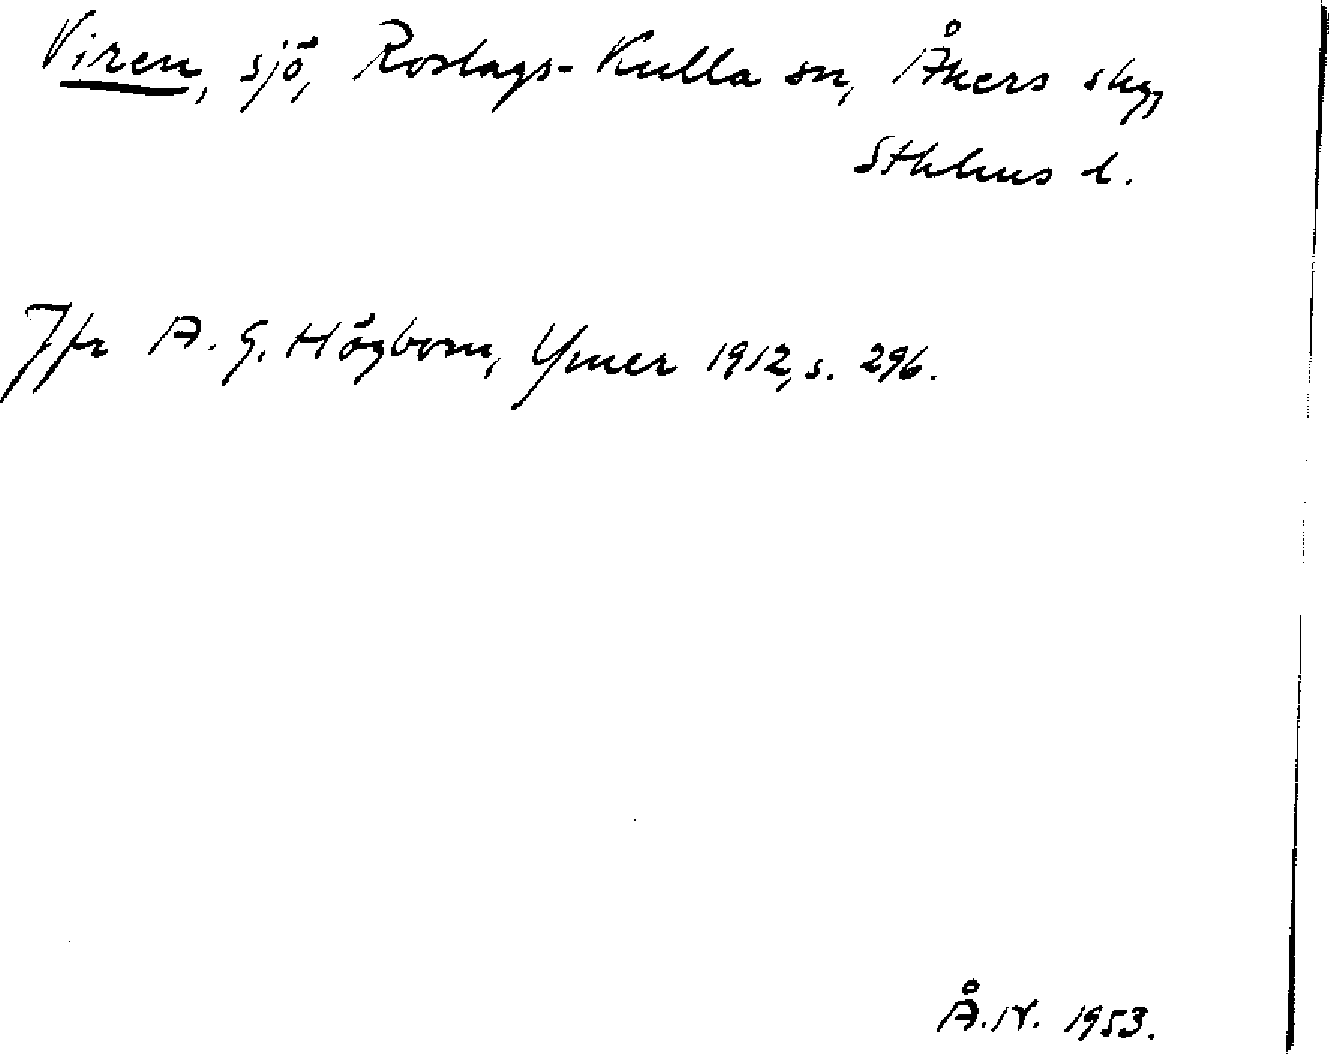 Viren, sjö, Roslags-Kulla sn, Åkers skg,
Sthlms l.
Jfr A. G. Högbom, Ymer 1912, s. 296.
Å.N. 1953.